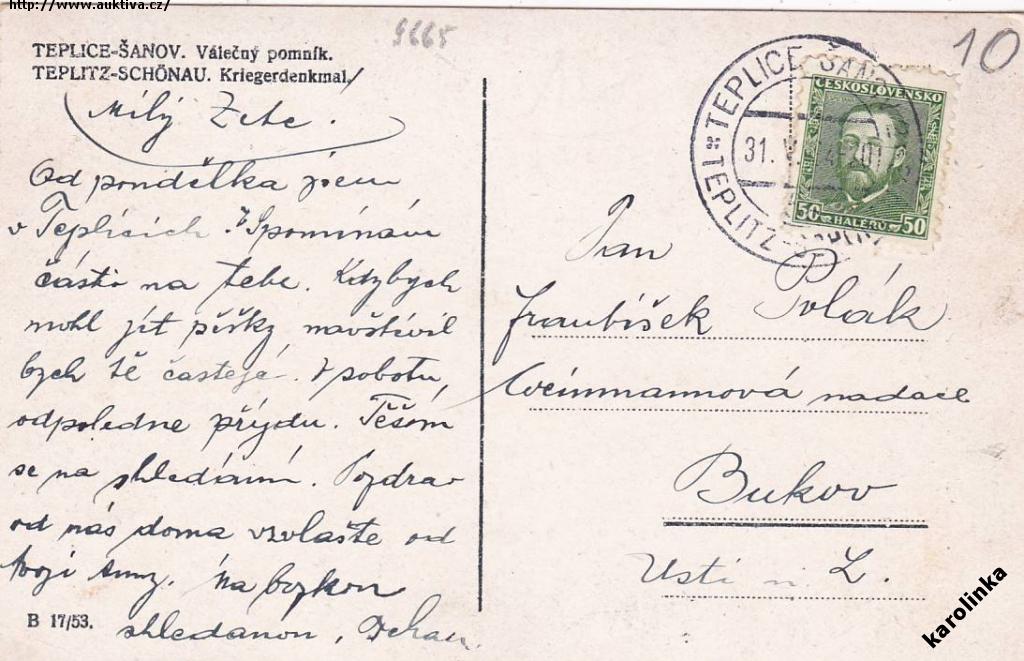 https://www.auktiva.cz/
9665
10
TEPLICE-ŠANOV. Válečný pomník.
TEPLITZ-SCHÖNAU. Kriegerdenkmal.
Milý
Od pondělka jsem
v Teplicích. Spomínám
části na tebe. Kdybych
mohl jít pěšky, navštívil
bych tě častejá. V sobotu,
odpoledne přijdu. Těším
se na shledání. Pozdra-
od nás doma vzvlaště od
Anny. Na
shledanou,
B 17/53.
TEPLICE-ŠAN
TEPLITZ-
31. V.
ČESKOSLOVENSKO
50 HALÉŘŮ 50
Pan
František Polák
Weinmannová nadace
Bukov
Ustí n. L.
karolinka